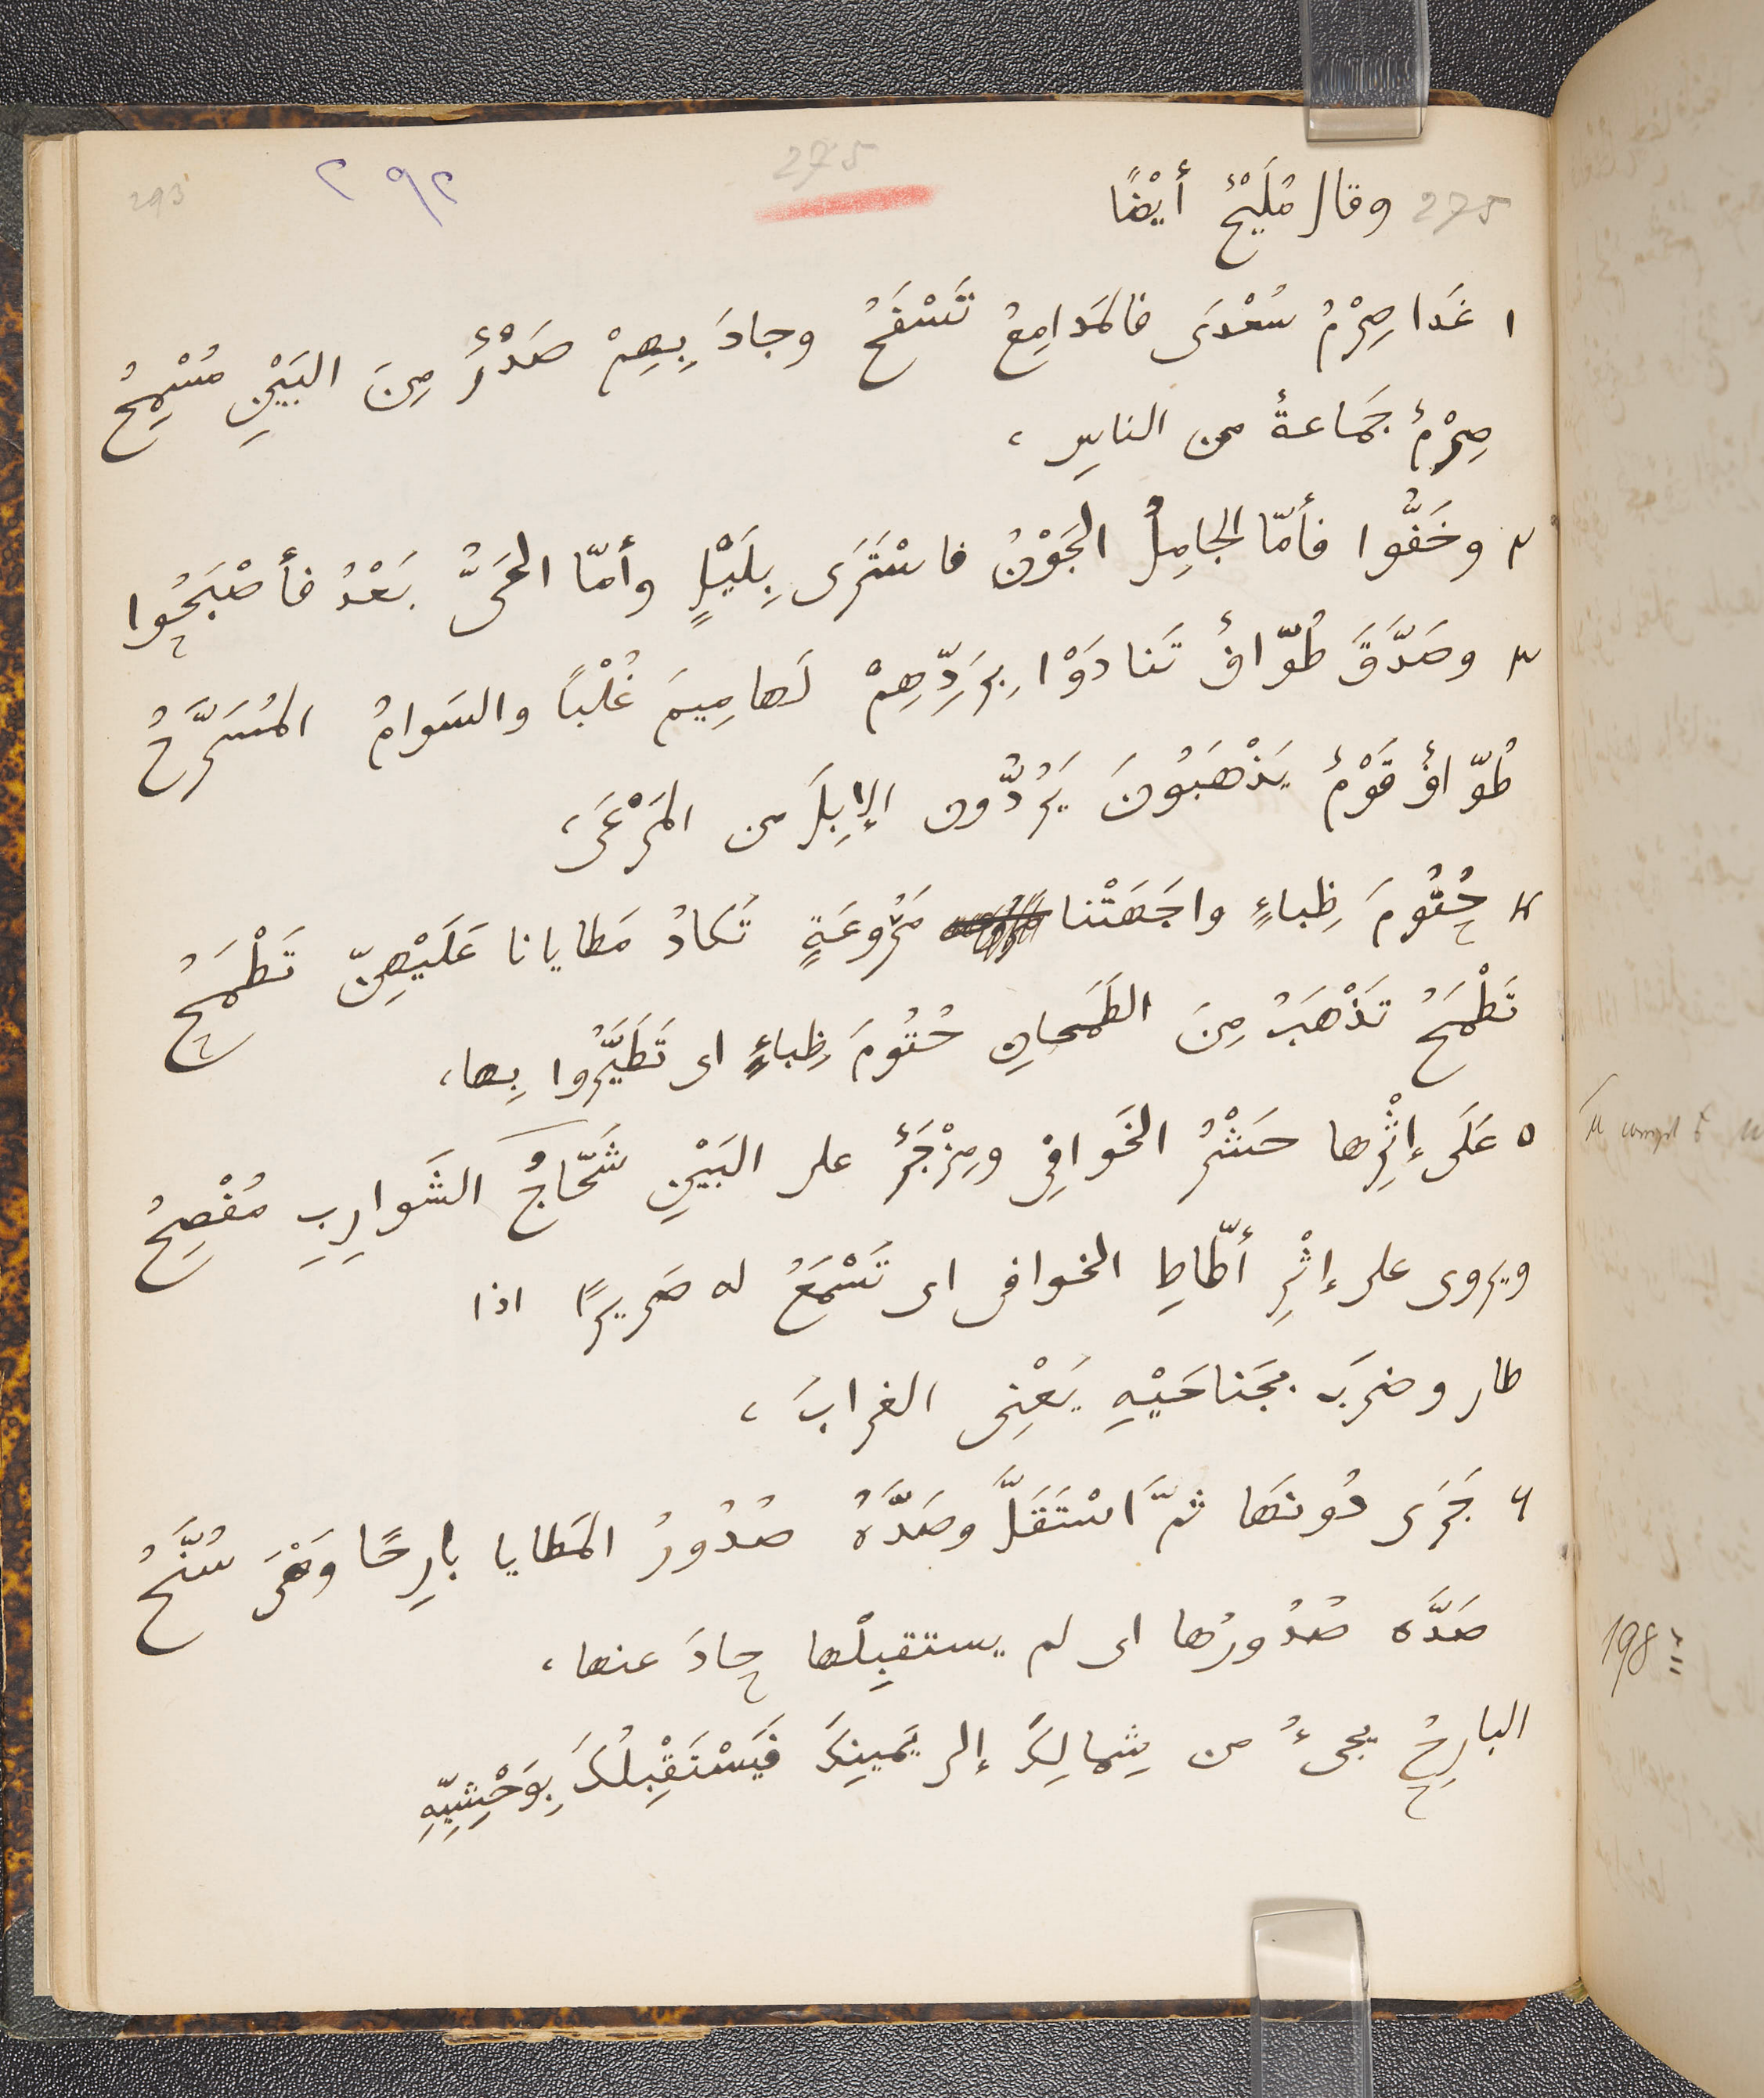 293
٢٩٢
275
275 وقال مُلَيْحٌ أَيْضًا
١ غَدَا صِرْمُ سُعْدَى فالمَدامِعُ تَسْفَحُ وجادَ بِهِمْ صَدْرٌ مِنَ البَيْنِ مُسْمِحُ
صِرْمٌ جَمَاعةٌ من الناسِ ،
٢ وخَفُّوا فأمّا الجامِلُ الجَوْنُ فاسْتَرَى بِلَيْلٍ وأمّا الحَىُّ بَعْدُ فأَصْبَحُوا
٣ وصَدَّقَ طُوّافٌ تَنادَوْا بِرَدِّهِمْ لَهامِيمَ غُلْبًا والسَوامُ المُسَرَّحُ
طُوّافٌ قَوْمٌ يَذْهَبُونَ يَرُدُّون الإبِلَ من المَرْعَى ،
٤ حُتُومَ ظِباءٍ واجَهَتْنا مَرُوعَةٍ تَكادُ مَطايانا عَلَيْهِنّ تَطْمَحُ
تَطْمَحُ تَذْهَبُ مِنَ الطَمَحانِ حُتُومَ ظِباءٍ اى تَطَيَّرُوا بِها ،
٥ عَلَى إثْرِها حَشْرُ الخَوافِى ومِزْجَرٌ على البَيْنِ شَحّاجُ الشَوارِبِ مُفْصِحُ
ويروى على إثْرِ أطّاطِ الخوافى اى تَسْمَعُ له صَرِيرًا اذا
طار وضرَبَ بجَناحَيْهِ يَعْنِى الغرابَ ،
٦ جَرَى دُونَها ثمَّ اسْتَقَلَّ وصَدَّهُ صُدُورُ المَطايا بارِحًا وَهْىَ سُنَّحُ
صَدَّه صُدُورُها اى لم يستقبِلْها حادَ عنها ،
البارِحُ يجىءُ من شِمالِكَ إلى يَمينِكَ فَيَسْتَقْبِلُكَ بِوَحْشِيِّهِ
198